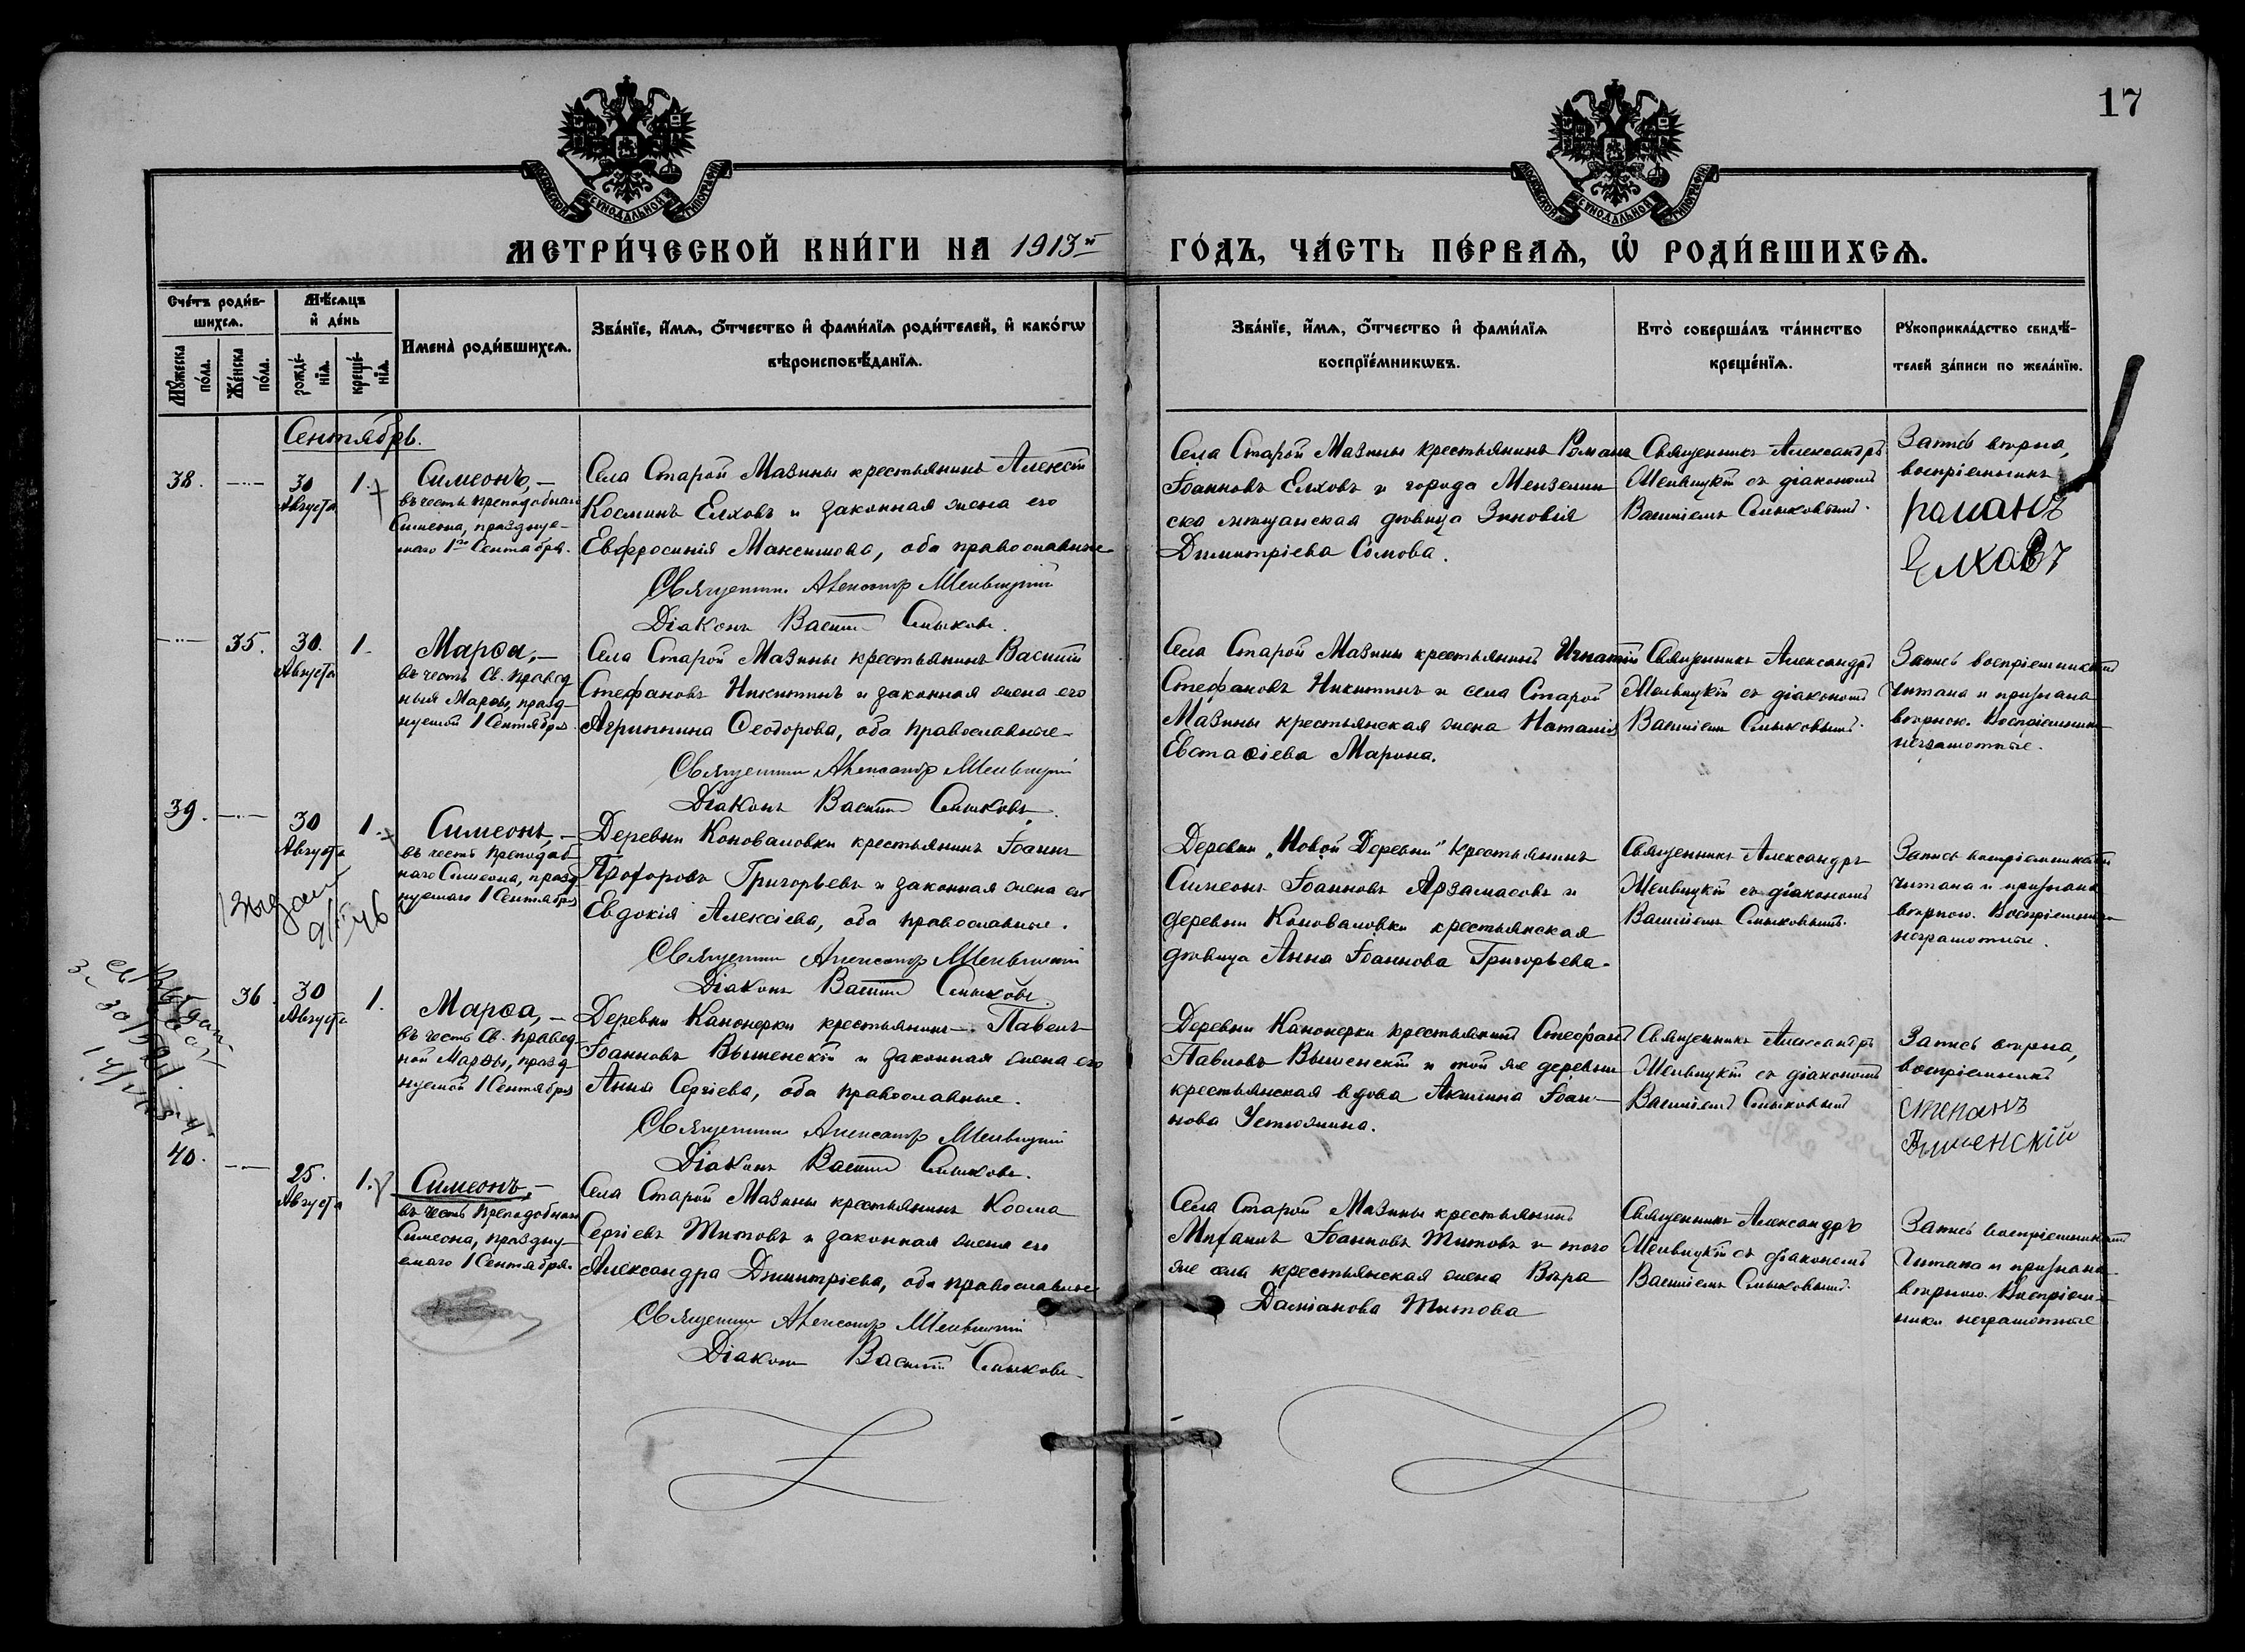 17
МОСКОВСКОЙ СУНОДАЛЬНОЙ ТИПОГРАФІИ
МОСКОВСКОЙ СУНОДАЛЬНОЙ ТИПОГРАФІИ
МЕТРИ́ЧЕСКОЙ КНИ́ГИ НА 1913й ГО́ДЪ, ЧА́СТЬ ПЕ́РВАѦ, Ѡ҆ РОДИ́ВШИХСѦ.
Сче́тъ роди́в-
шихсѧ.
Мꙋ́жеска
по́ла.
Же́нска
по́ла.
Мѣ́сѧцъ
и҆ де́нь
рожде́-
нїѧ.
креще́-
нїѧ.
Имена̀ роди́вшихсѧ.
Зва́нїе, и҆́мѧ, ѻ҆́тчество и҆ фами́лїѧ роди́телей, и҆ како́гѡ
вѣроисповѣ́данїѧ.
Зва́нїе, и҆́мѧ, ѻ҆́тчество и҆ фами́лїѧ
воспрїе́мникѡвъ.
Кто̀ соверша́лъ та́инство
креще́нїѧ.
Рꙋкоприкла́дство свидѣ́-
телей за́писи по жела́нїю.
Сентябрь.
38.
30
Августа
1.
Симеонъ, —
въ честь преподобнаго
Симеона, праздуе-
маго 1го Сентября.
Села Старой Мазины крестьянинъ Алексій
Косминъ Елховъ и законная жена его
Евфросинія Максимова, оба православные
Священникъ Александръ
Діаконъ Василій Смыковъ.
Села Старой Мазины крестьянинъ Романъ
Іоанновъ Елховъ и города Мензелин-
ска мѣщанская дѣвица Зиновія
Димитріева Сомова.
Священникъ Александръ
съ діакономъ
Василіемъ Смыковымъ.
Запись вѣрна,
воспріемникъ
Романъ
Елховъ
35.
30.
Августа
1.
Марѳа, —
въ честь Св. правед-
ныя Марѳы, празд-
нуемой 1 Сентября
Села Старой Мазины крестьянинъ Василій
Стефановъ Никитинъ и законная жена его
Агриппина Ѳеодорова, оба православные
Священникъ Александръ
Діаконъ Василій Смыковъ.
Села Старой Мазины крестьянинъ Игнатій
Стефановъ Никитинъ и села Старой
Мазины крестьянская жена Наталія
Евстаѳіева Марина.
Священникъ Александръ
съ діакономъ
Василіемъ Смыковымъ.
Запись воспріемникамъ
читана и признана
вѣрною. Воспріемники
неграмотные.
39.
30
Августа
1.
Симеонъ, —
въ честь преподоб-
наго Симеона, празд-
нуемаго 1 Сентября
Деревни Коноваловки крестьянинъ Іоаннъ
Прохоровъ Григорьевъ и законная жена его
Евдокія Алексіева, оба православные.
Священникъ Александръ
Діаконъ Василій Смыковъ.
Деревни „Новой Деревни" крестьянинъ
Симеонъ Іоанновъ Арзамасовъ и
деревни Коноваловки крестьянская
дѣвица Анна Іоаннова Григорьева.
Священникъ Александръ
съ діакономъ
Василіемъ Смыковымъ.
Запись воспріемникамъ
читана и признана
вѣрною. Воспріемники
неграмотные.
36.
30
Августа
1.
Марѳа, —
въ честь Св. правед-
ной Марѳы, празд-
нуемой 1 Сентября
Деревни Канонерки крестьянинъ Павелъ
Іоанновъ Вышенскій и законная жена его
Анна Сергіева, оба православные.
Священникъ Александръ
Діаконъ Василій Смыковъ.
Деревни Канонерки крестьянинъ Стефанъ
Павловъ Вышенскій и той же деревни
крестьянская вдова Акилина Іоан-
нова Устюжина.
Священникъ Александръ
съ діакономъ
Василіемъ Смыковымъ
Запись вѣрна,
воспріемникъ
Степанъ
Вышенскій
40.
25.
Августа
1.
Симеонъ, —
въ честь преподобнаго
Симеона, праздну-
емаго 1 Сентября.
Села Старой Мазины крестьянинъ Косма
Сергіевъ Титовъ и законная жена его
Александра Димитріева, оба православные
Священникъ Александръ
Діаконъ Василій Смыковъ
Села Старой Мазины крестьянинъ
Михаилъ Іоанновъ Титовъ и того
же села крестьянская жена Вѣра
Даміанова Титова
Священникъ Александръ
съ діакономъ
Василіемъ Смыковымъ.
Запись воспріемникамъ
читана и признана
вѣрною. Воспріем-
ники неграмотные